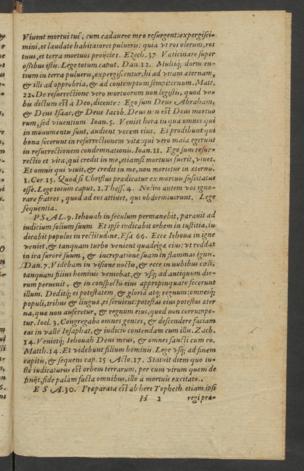 Vivent mortui tui, cum cadauere meo resurgent: expergisci-
mini, et laudate habitatores pulueris: quia vt ros olerum, ros
tuus, et terra mortuos projiciet. Ezech. 37 Vaticinare super
ossibus istis. Lege totum caput. Dan. 12. Multiq; dormien-
tium in terra pulueris, expergiscentur, hi ad vitam æternam,
& illi ad opprobria, & ad contemptum sempiternum. Matt.
22. De resurrectione vero mortuorum non legistis, quod vo-
bis dictum est à Deo, dicente: Ego sum Deus Abraham,
& Deus Isaac, & Deus Jacob. Deus non est Deus mortuo
rum, sed viuentium Ioan. 5. Venit hora in qua omnes qui
in monumentis sunt, audient vocem eius. Et prodibunt qui
bona fecerunt in resurrectionem vitæ: qui vero mala egerunt
in resurrectionem condemnationis. Ioan. 11. Ego sum resur-
rectio et vita, qui credit in me, etiamsi mortuus fuerit, viuet.
Et omnis qui viuit, & credit in me, non morietur in æternum.
1. Cor. 15. Quod si Christus prædicatur ex mortuis suscitatus
esse. Lege totum caput. 1. Thess. 4. Nolim autem vos igno-
rare fratres, quod ad eos attinet, qui obdormierunt. Lege
sequentia.
PSAL. 9. Iehouah in seculum permanebit, parauit ad
iudicium solium suum Et ipse iudicabit orbem in iustitia, iu-
dicabit populos in rectitudine. Esa 66. Ecce Iehoua in igne
veniet, & tanquam turbo venient quadrigæ eius: vt reddat
in ira furore suum, & increpatione suam in flammas ignis.
Dan. 7. Videbam in visione noctis, & ecce in nubibus cœli,
tanquam filius hominis veniebat, & vsq; ad antiquum die-
rum peruenit, & in conspectu eius appropinquare fecerunt
illum. Deditq; ei potestatem, & gloriam & regnum: omnesq;
populi, tribus & linguæ, ei seruient: potestas eius potestas æter
na, quæ non auferetur, & regnum eius, quod non corrumpe-
tur. Ioel. 3. Congregabo omnes gentes, & descendere faciam
eas in valle Iosaphat, & iudicio contendam cum illis. Zach.
14. Venietq; Iehouah Deus meus, & omnes sancti cum eo.
Matth. 24. Et videbunt filium hominis. Lege vsq; ad finem
capitis, & sequens cap. 25 Acto. 17. Statuit diem quo iu-
ste iudicaturus est orbem terrarum, per eum virum quem de
stinet, fide palam facta omnibus, illo à mortuis excitato.
ESA. 30. Præparata est ab here Topheth etiam ipsi
H 2 regi præ-